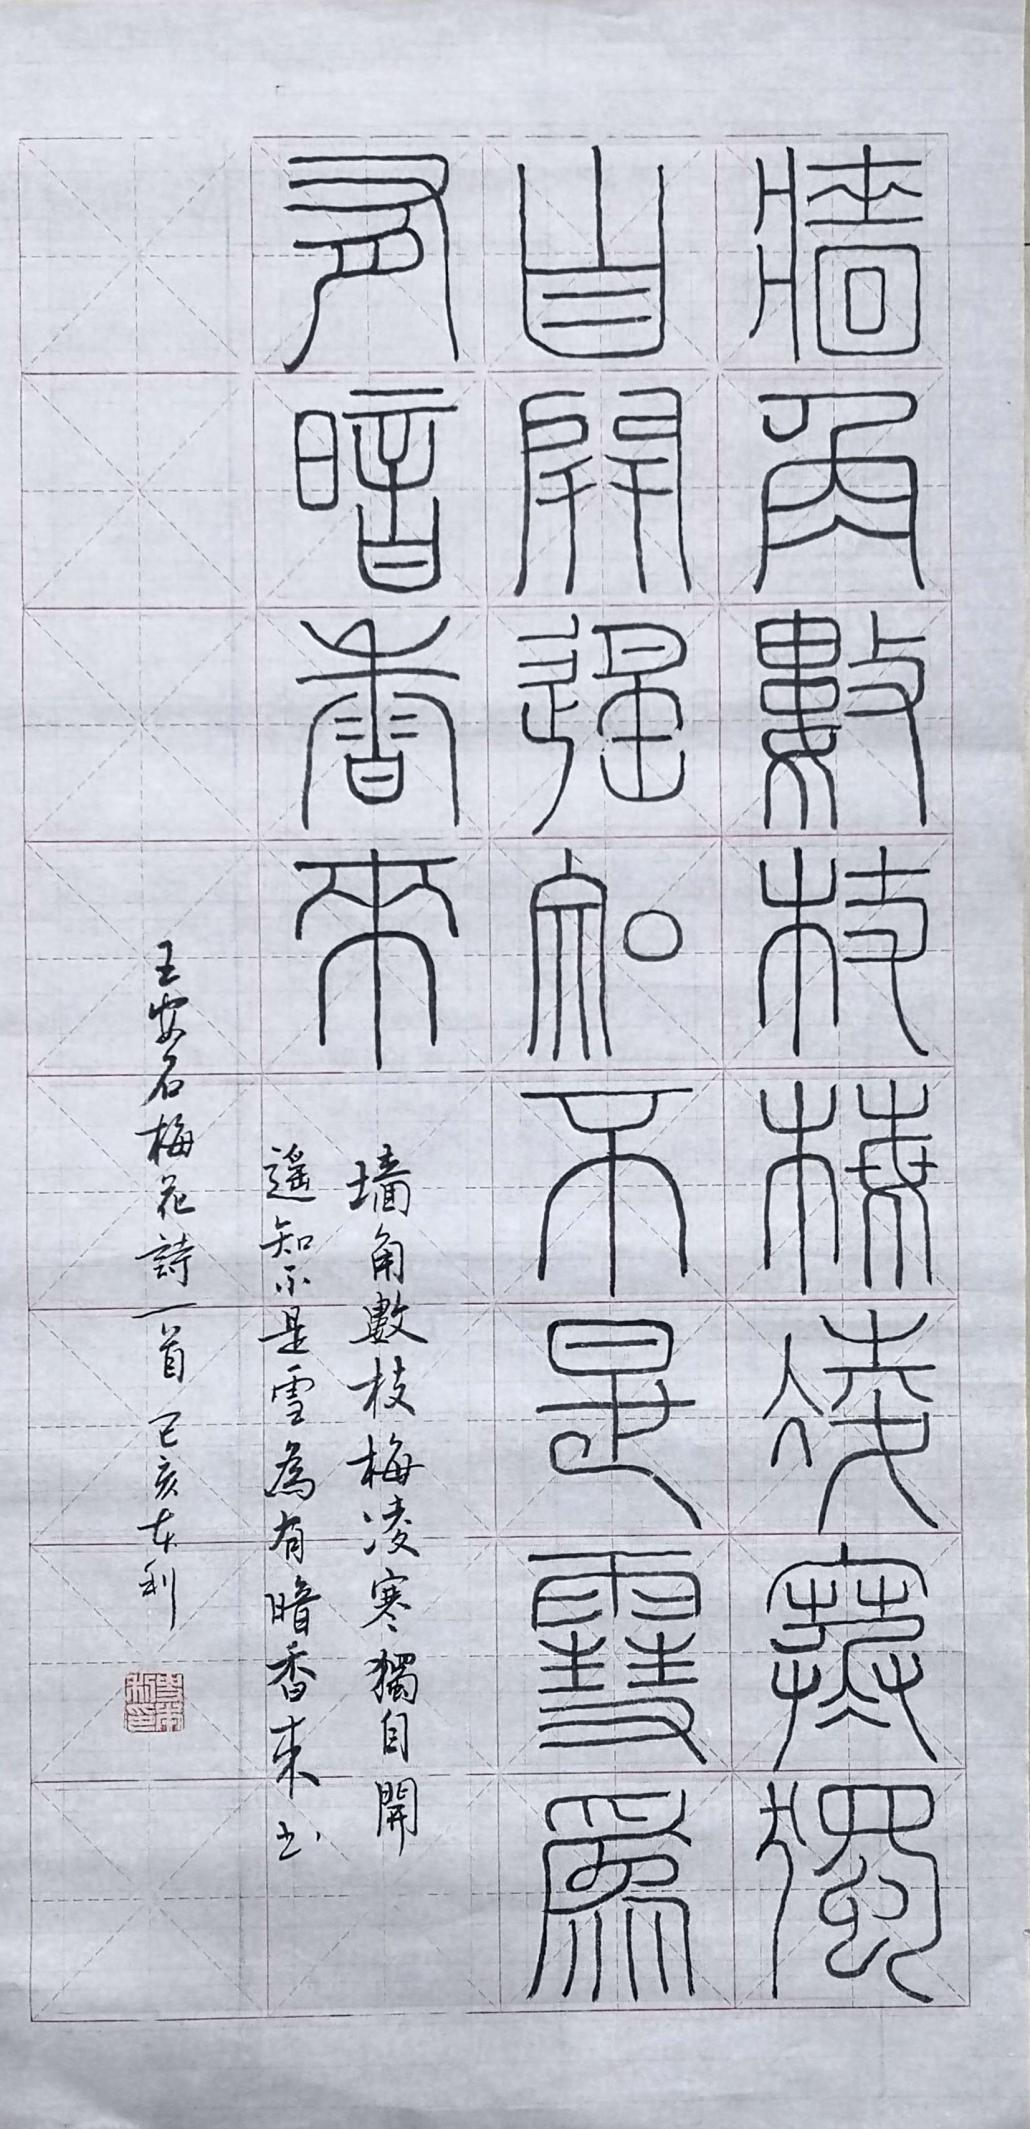 牆角數枝梅凌寒獨
自開遥知不是雪為
有暗香來
墙角數枝梅凌寒獨自開
遥知不是雪為有暗香来
王安石梅花詩一首 己亥